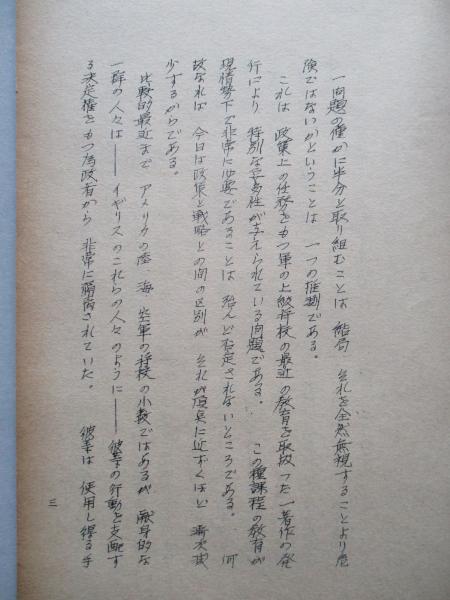 一問題の僅かに半分と取り組むことは 結局 それを全然無視することより危
険ではないかということは 一つの推判である。
これは 政策上の任務をもつ軍の上級将校の最近の教育を取扱った一著作の発
行により 特別な妥当性が与えられている問題である。 この種課程の教育が
現情勢下で非常に必要であることは 殆んど否定されないところである。 何
故なれば 今日は政策と戦略との間の区別が それが頂点に近ずくほど 漸次減
少するからである。
比較的最近まで アメリカの陸 海 空軍の将校の小数ではあるが 献身的な
一群の人々は——イギリスのこれらの人々のように——彼等の行動を支配す
る決定権をもつ為政者から 非常に隔離されていた。 彼等は 使用し得る手
三